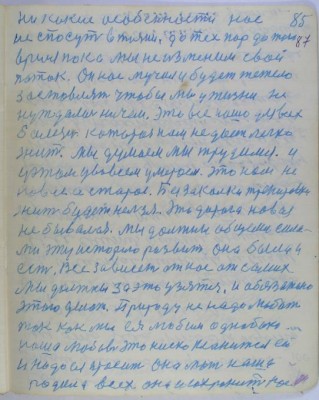 никакие особенности нас 85
не спосут в жизни. До тех пор до тко 87
врип пока мы не изменим свой
поток. Он нас мучил и будет тоже
заставлят чтобы мы у жизни не
нуждалис ничем. Это все нашо для всех
болезн которая нам не дает легко
жит. Мы думаем мы трудимся. и
на этом умроем. Это нам не
новое а старое. Без закалки тренировки
жит будет нельзя. Это дорога новая
не бывалоя. Мы должны общими сила
ми эту историю розвит. она была и
ест. Все зависит от нас от самих
мы должны за это узятся, и обязательно
этого делат. Природу не надо любит
так как мы ея любим однобоко
наша любов это низко кланится ей
и надо просит она мат наша
родила всех она и сохронит нас